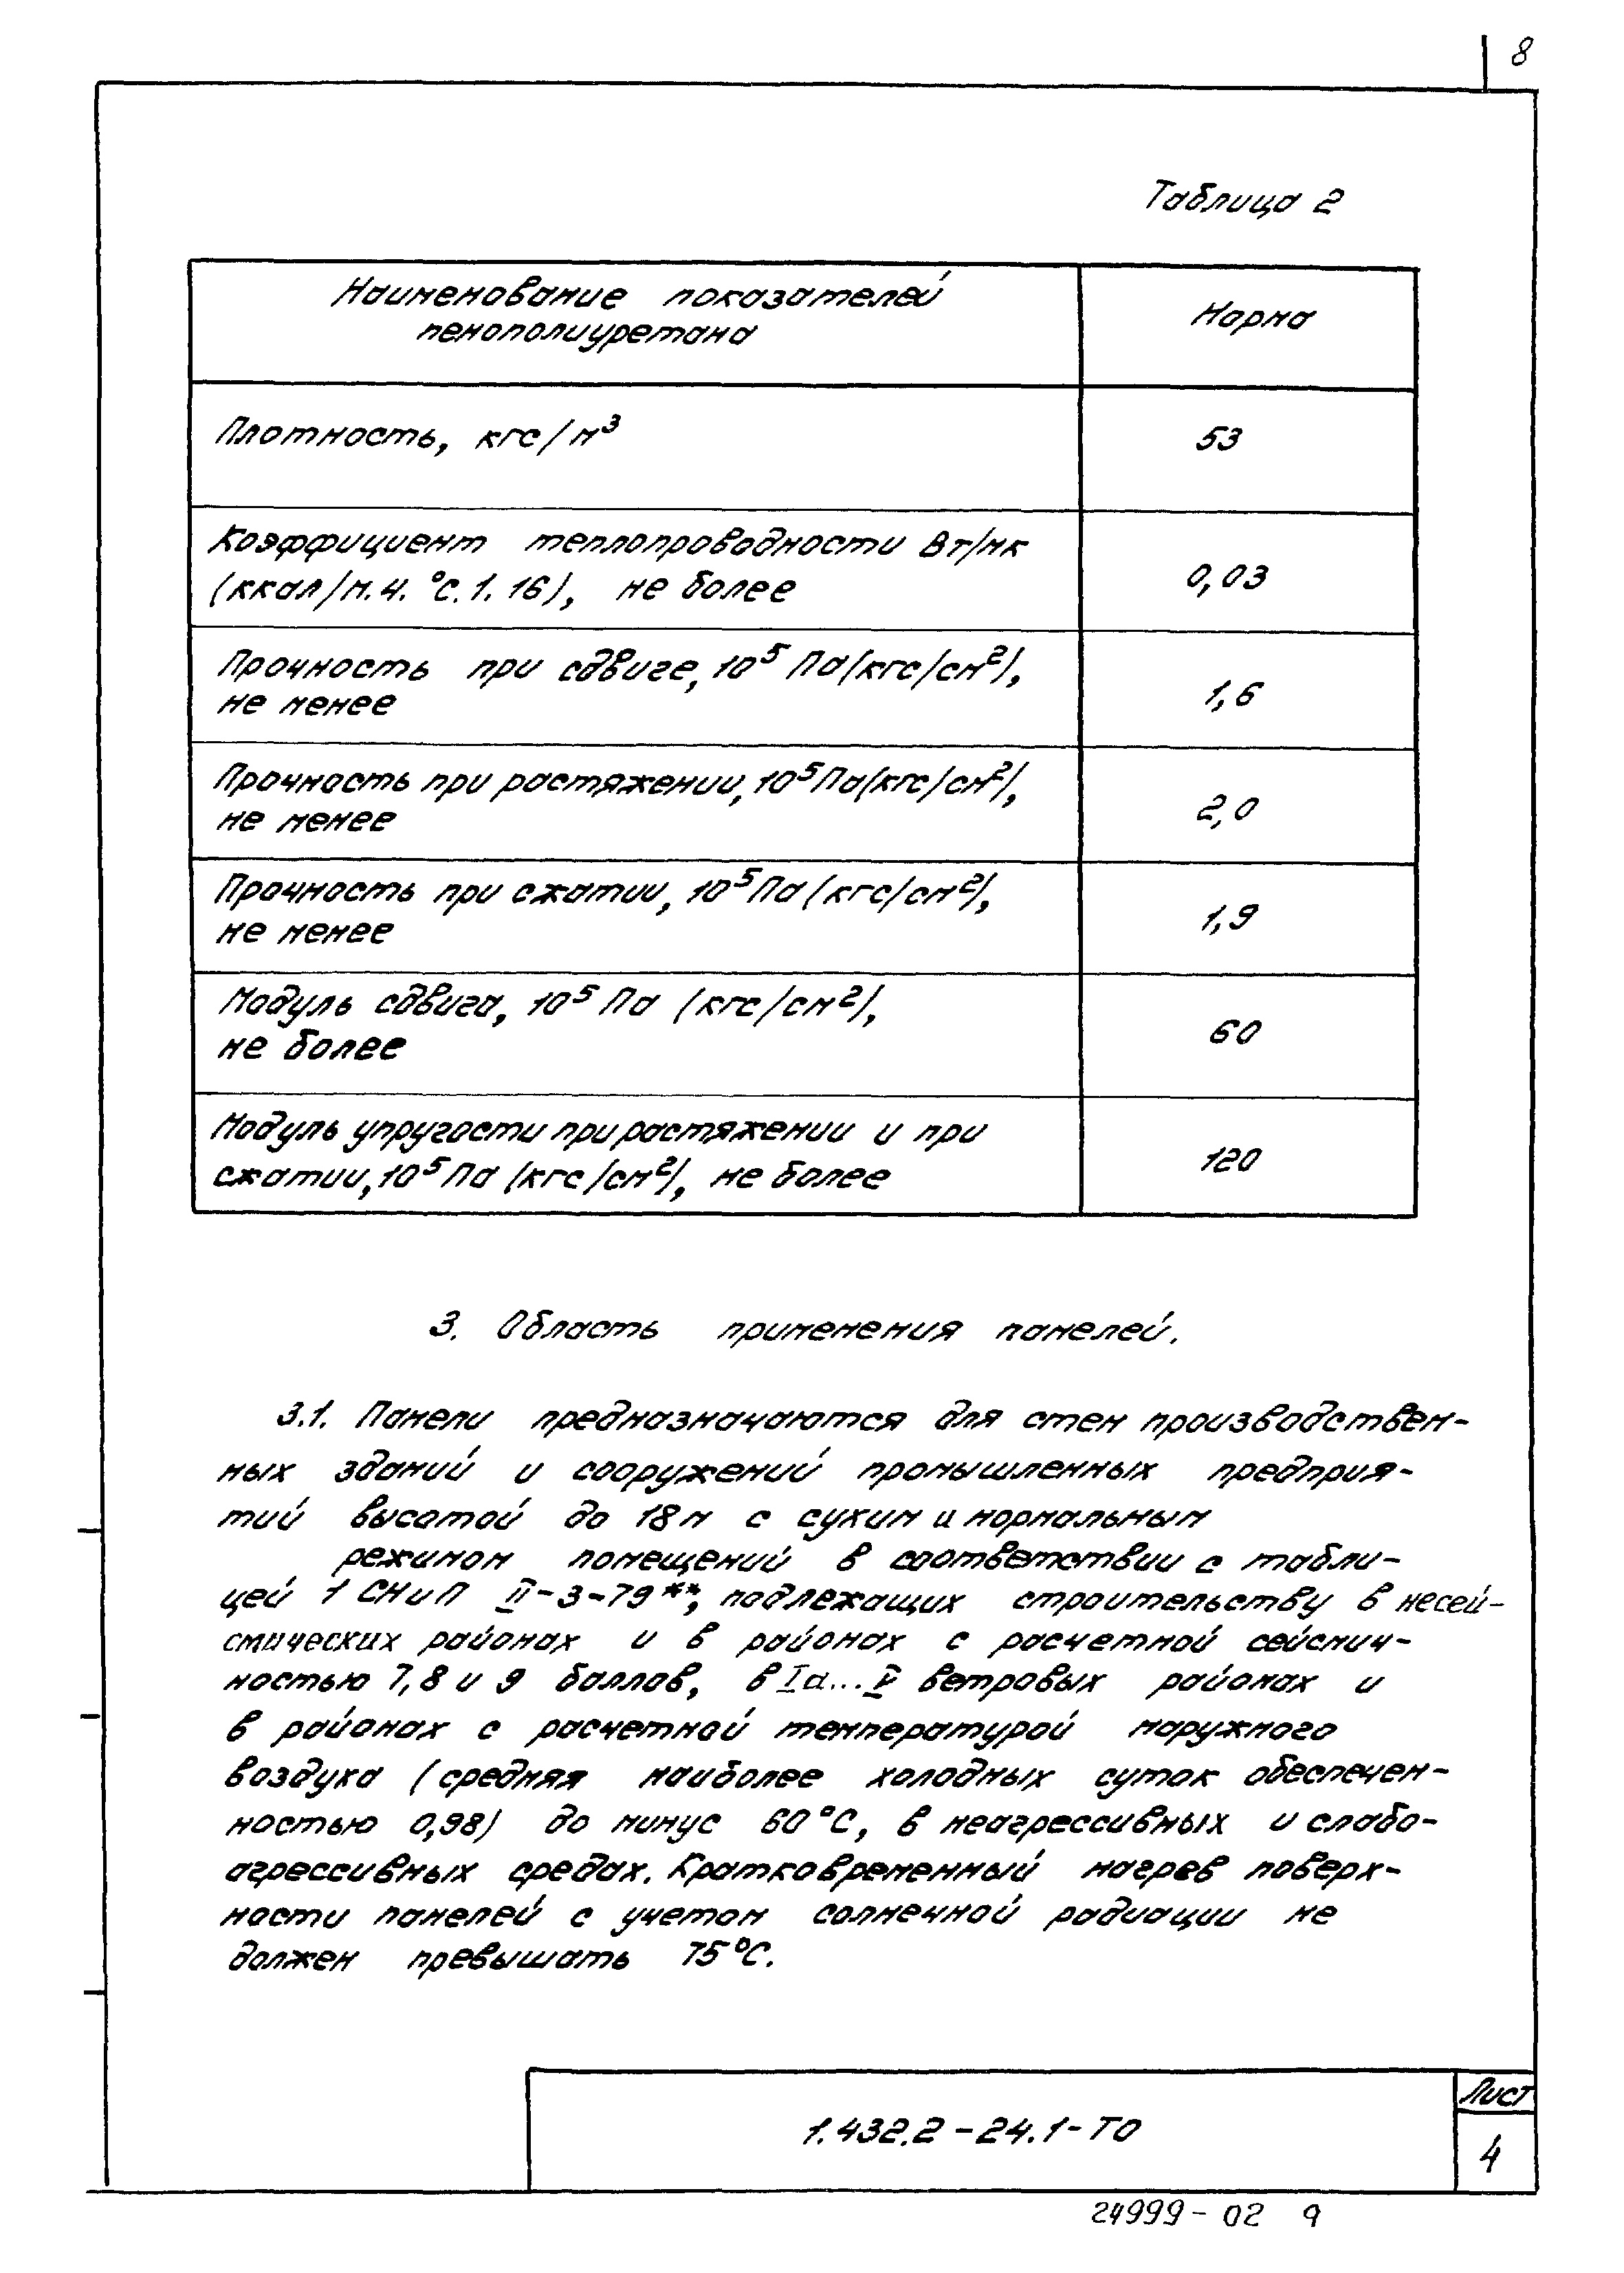 8
Таблица 2
Наименование показателей
пенополиуретана
Норма
Плотность, кгс/м³
53
Коэффициент теплопроводности Вт/мк
(ккал/м.ч. °с.1.16), не более
0,03
Прочность при сдвиге, 10⁵ Па(кгс/см²),
не менее
1,6
Прочность при растяжении, 10⁵ Па(кгс/см²),
не менее
2,0
Прочность при сжатии, 10⁵ Па (кгс/см²),
не менее
1,9
Модуль сдвига, 10⁵ Па (кгс/см²),
не более
60
Модуль упругости при растяжении и при
сжатии, 10⁵ Па (кгс/см²), не более
120
3. Область применения панелей.
3.1. Панели предназначаются для стен производствен-
ных зданий и сооружений промышленных предприя-
тий высотой до 18м с сухим и нормальным
режимом помещений в соответствии с табли-
цей 1 СНиП II-3-79**, подлежащих строительству в несей-
смических районах и в районах с расчетной сейсмич-
ностью 7,8 и 9 баллов, в Iа...V ветровых районах и
в районах с расчетной температурой наружного
воздуха (средняя наиболее холодных суток обеспечен-
ностью 0,98) до минус 60°С, в неагрессивных и слабо-
агрессивных средах. Кратковременный нагрев поверх-
ности панелей с учетом солнечной радиации не
должен превышать 75°С.
1.432.2-24.1-ТО
Лист
4
24999-02 9